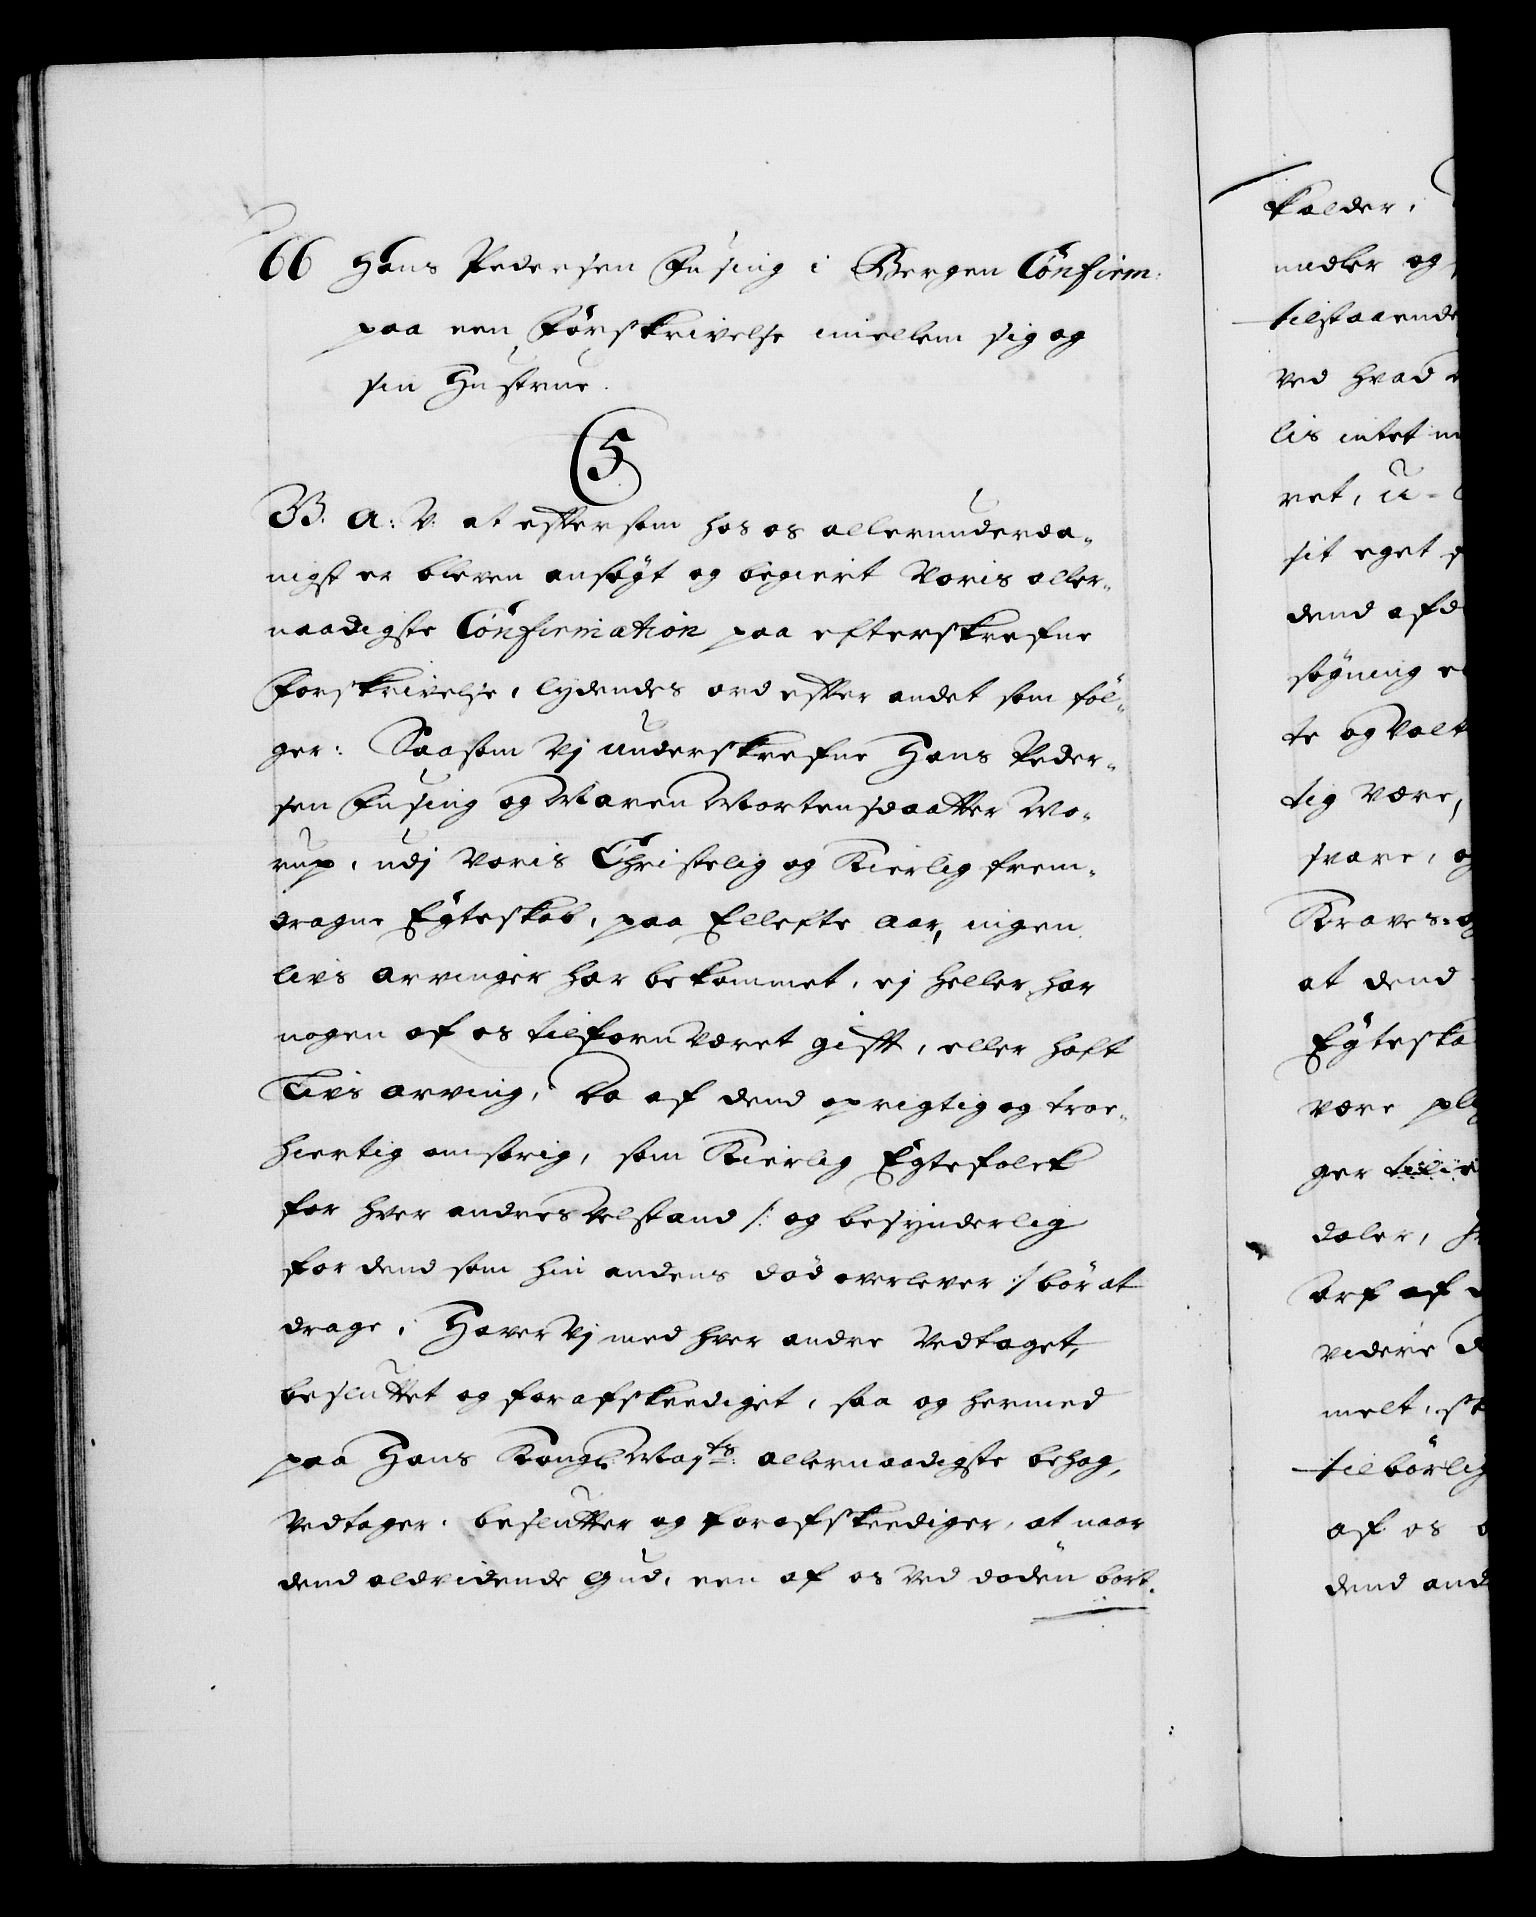 66 Hans Pedersen Fusing i Bergen Confirm:
paa een Forskrivelse imellem sig og
sin Hustrue.
5
G. A: V. at eftersom hos os allerunderda-
nigst er bleven ansøgt og begiert Voris aller-
naadigste Confirmation paa efterskrefne
Forskrivelse, lydendes ord efter andet som föl-
ger: Saasom Vj underskrefne Hans Peder-
sen Fusing og Maren Mortensdaatter Mo-
rup, udj Voris Christelig og Kierlig frem-
dragne Egteskab, paa Ellefte Aar, ingen
livs arvinger har bekommet, ej heller har
nogen af os tilforn været gift, eller haft
Livs arving, Da af dend oprigtig og troe-
hiertig omsorig, som Kierlig Egtefolck
for hver andres Velstand /: og besynderlig
for dend som hin andens död overlever :/ bör at
drage, Haver Vj med hver andre Vedtaget,
besluttet og forafskeediget, saa og hermed
paa Hans Kongl: Majts: allernaadigste behag,
Vedtager, beslutter og forafskeediger, at naar
dend aldvidende Gud, een af os Ved döden bort.
kalder,
midler og
tilstaaende
Ved hvad
lis intet
ret, u-
sit eget
dend afd
søgning
te og Valt
tig Være,
svare, og
Kraves- og
at dend
Egteska
være pl
ger
daler,
Arf af
videre
melt, st
tilbörlig
af os
dend and